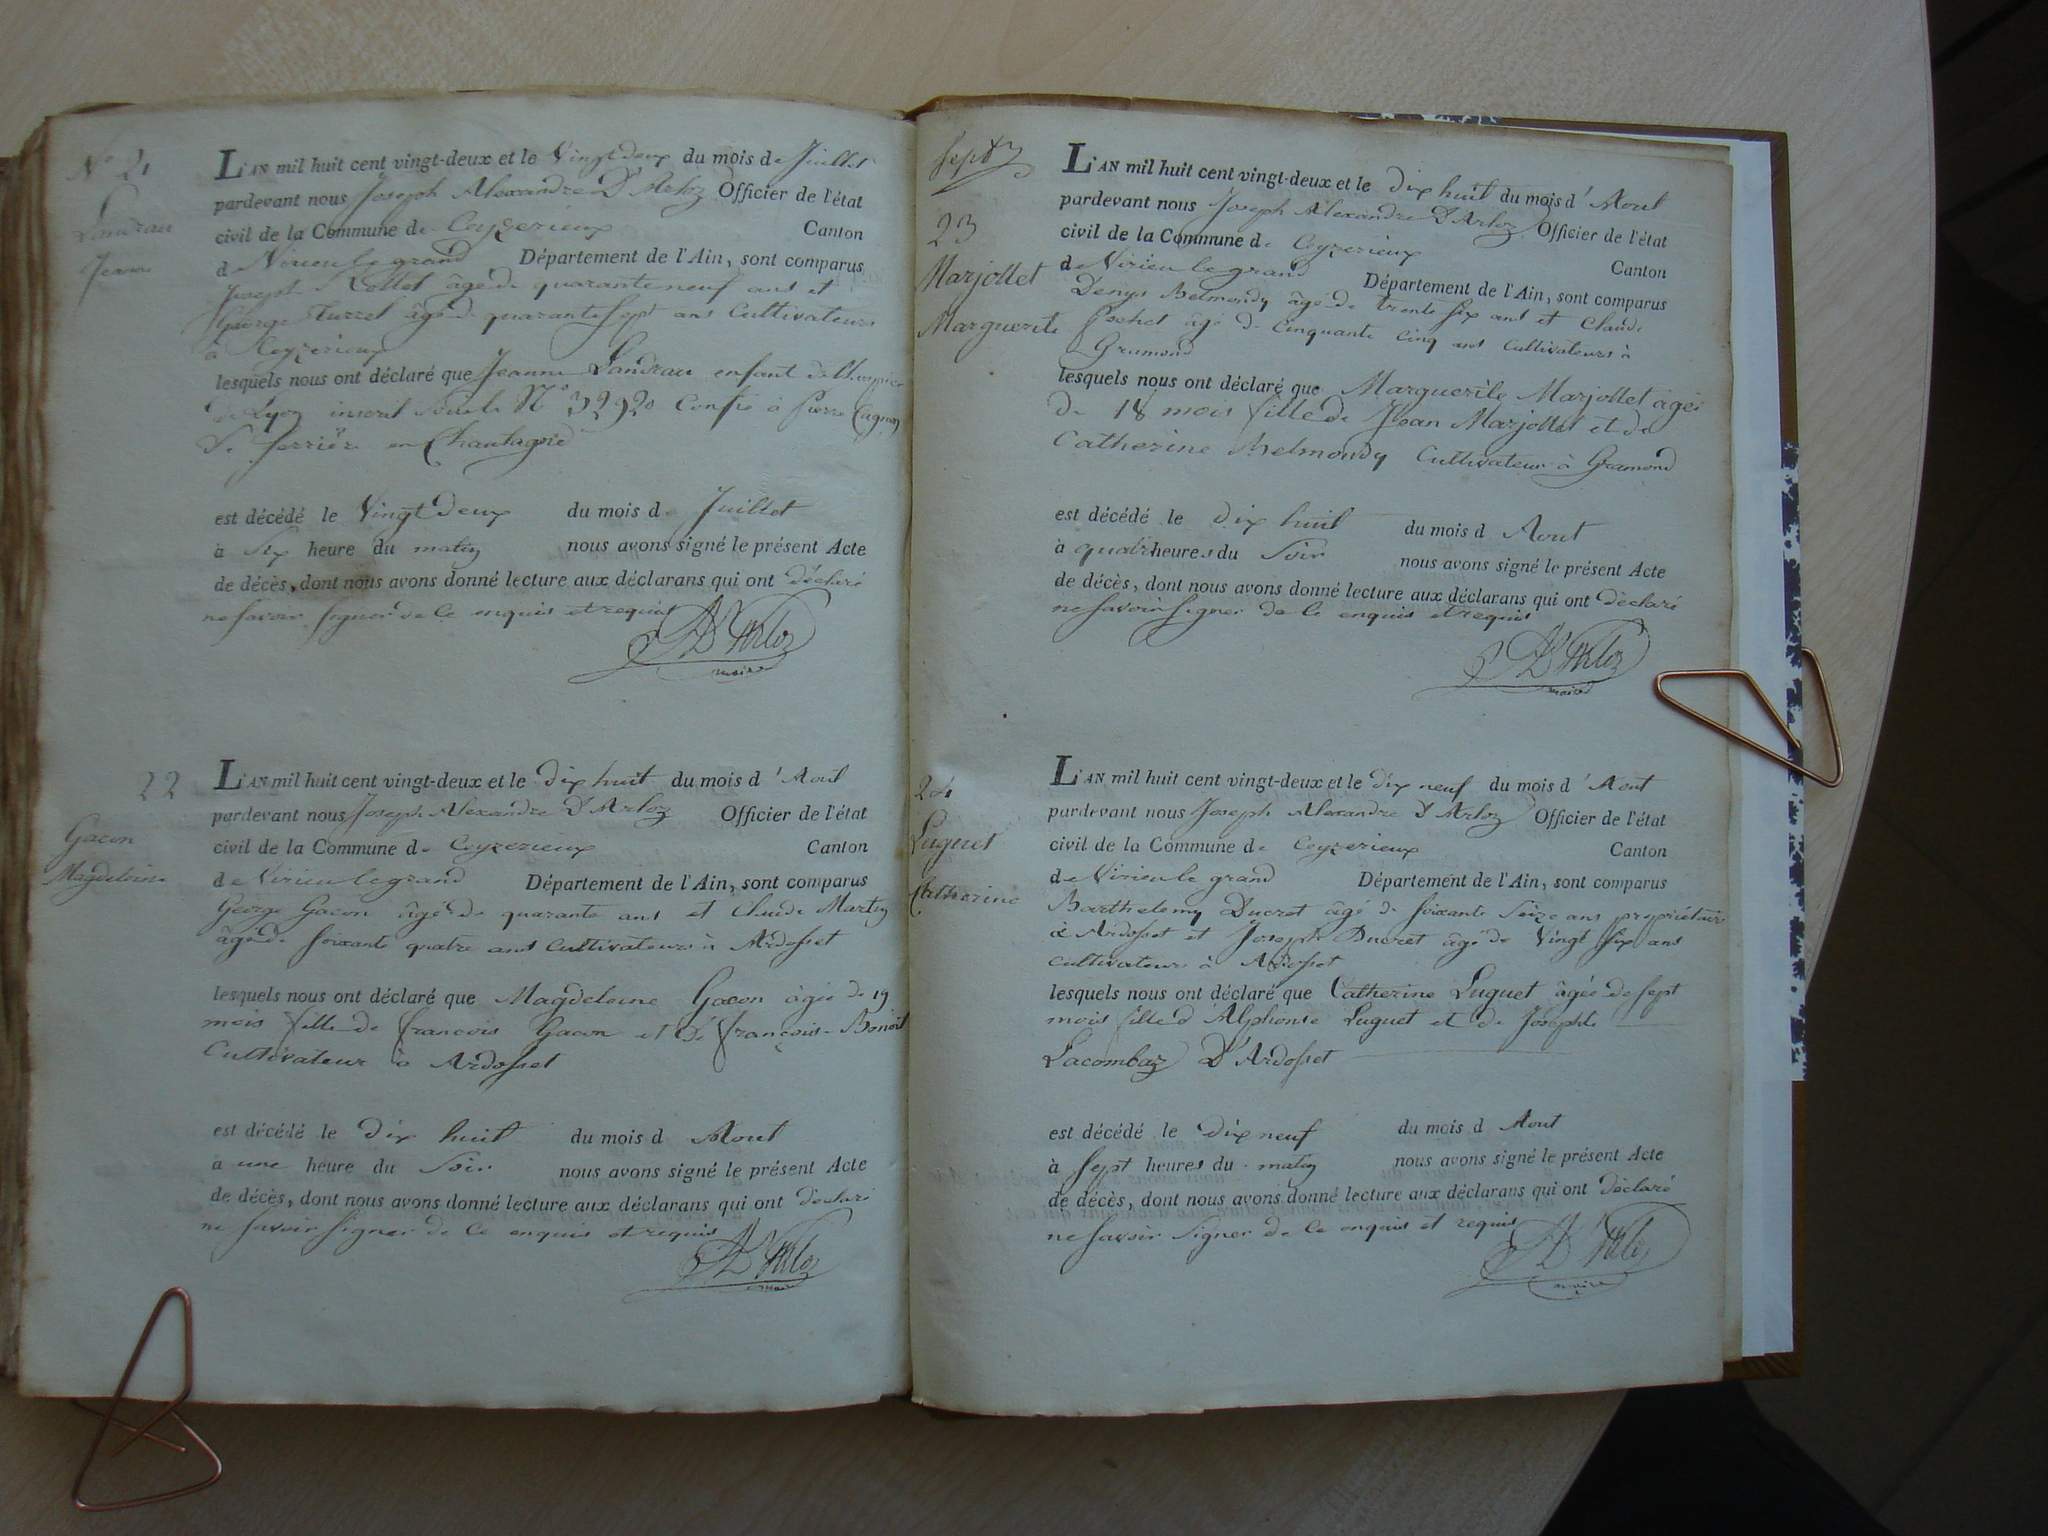 N° 21
Landrau
Jeanne
L'AN mil huit cent vingt-deux et le Vingt deux du mois de Juillet
pardevant nous Joseph Alexandre D'Arloz Officier de l'état
civil de la Commune de Ceyzerieux Canton
de Virieu le grand Département de l'Ain, sont comparus
Joseph Rollet âgé de quarante neuf ans et
George Turrel âgé de quarante Sept ans Cultivateurs
à Ceyzerieux
lesquels nous ont déclaré que Jeanne Landrau enfant de l'hospice
de Lyon inscrit sous le N° 32920 Confié à Pierre
de en Chautagne
est décédé le Vingt Deux du mois d. Juillet
à Six heure du matin nous avons signé le présent Acte
de décès, dont nous avons donné lecture aux déclarans qui ont déclaré
ne savoir signer de ce enquis et requis
D'Arloz
maire
22
Gacon
Magdeleine
L'AN mil huit cent vingt-deux et le dix huit du mois d'Aout
pardevant nous Joseph Alexandre D'Arloz Officier de l'état
civil de la Commune de Ceyzerieux Canton
de Virieu le grand Département de l'Ain, sont comparus
George Gacon âgé de quarante ans et Claude Martin
âgé de soixante quatre ans cultivateurs à Ardosset
lesquels nous ont déclaré que Magdeleine Gacon âgée de 19
mois fille de françois Gacon et de françoise Benoit
Cultivateur à Ardosset
est décédé le dix huit du mois d Aout
à une heure du Soir nous avons signé le présent Acte
de décès, dont nous avons donné lecture aux déclarans qui ont déclaré
ne savoir signer de ce enquis et requis
D'Arloz
maire
Sept
23
Marjollet
Marguerite
L'AN mil huit cent vingt-deux et le dix huit du mois d'Aout
pardevant nous Joseph Alexandre D'Arloz Officier de l'état
civil de la Commune de Ceyzerieux Canton
de Virieu le grand Département de l'Ain, sont comparus
Denys Belmondy âgé de trente six ans et Claude
Pochet âgé de Cinquante Cinq ans Cultivateurs à
Gramond
lesquels nous ont déclaré que Marguerite Marjollet âgée
de 18 mois fille de Jean Marjollet et de
Catherine Belmondy Cultivateur à Gramond
est décédé le dix huit du mois d Aout
à quatre heures du Soir nous avons signé le présent Acte
de décès, dont nous avons donné lecture aux déclarans qui ont déclaré
ne savoir signer de ce enquis et requis
D'Arloz
maire
24
Luguet
Catherine
L'AN mil huit cent vingt-deux et le dix neuf du mois d'Aout
pardevant nous Joseph Alexandre D'Arloz Officier de l'état
civil de la Commune de Ceyzerieux Canton
de Virieu le grand Département de l'Ain, sont comparus
Barthelemy Ducret âgé de soixante Seize ans propriétaire
à Ardosset et Joseph Ducret âgé de Vingt six ans
cultivateurs à Ardosset
lesquels nous ont déclaré que Catherine Luguet âgée de sept
mois fille d'Alphonse Luguet et de Josephte
Lacombaz D'Ardosset
est décédé le dix neuf du mois d Aout
à Sept heures du matin nous avons signé le présent Acte
de décès, dont nous avons donné lecture aux déclarans qui ont déclaré
ne savoir signer de ce enquis et requis
D'Arloz
maire